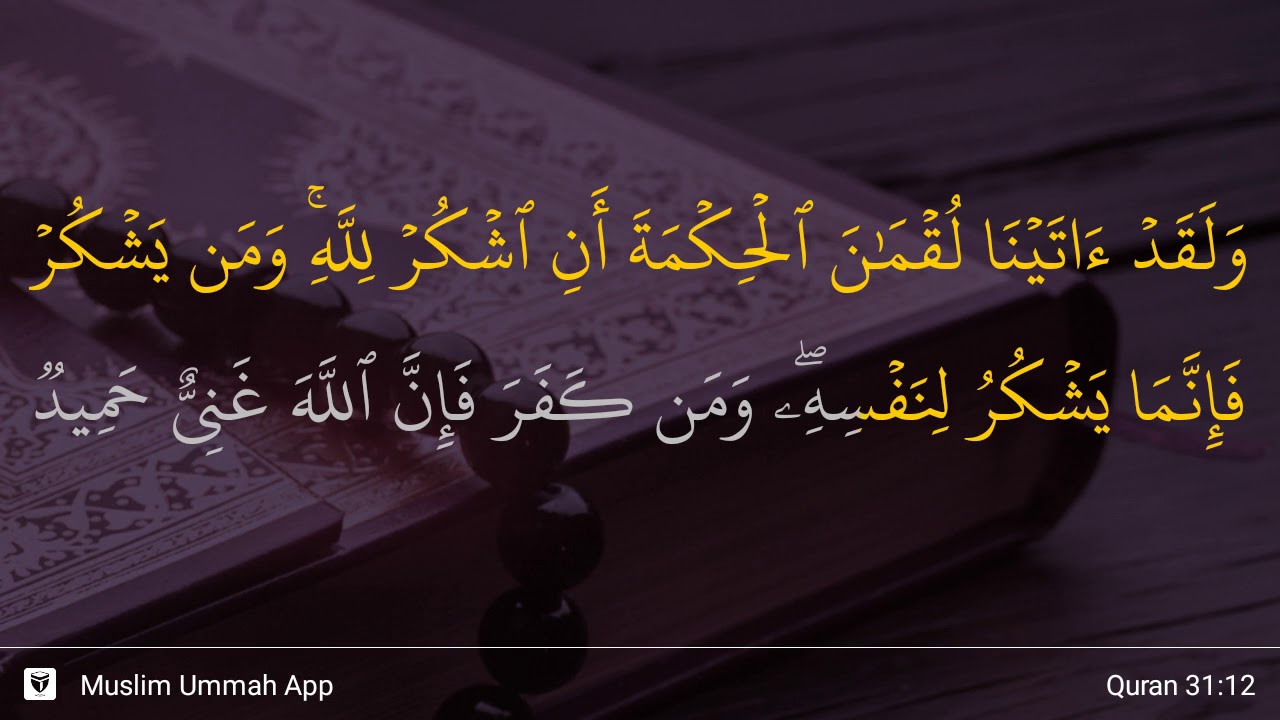 وَلَقَدۡ ءَاتَيۡنَا لُقۡمَٰنَ ٱلۡحِكۡمَةَ أَنِ ٱشۡكُرۡ لِلَّهِۚ وَمَن يَشۡكُرۡ
فَإِنَّمَا يَشۡكُرُ لِنَفۡسِهِۦۖ وَمَن كَفَرَ فَإِنَّ ٱللَّهَ غَنِيٌّ حَمِيدٞ
Muslim Ummah App
Quran 31:12